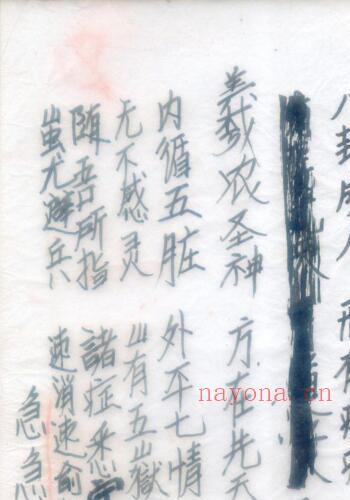 八卦成人 形有
羲农圣神 方在先天
内循五脏 外平七情
无不感灵 山有五嶽
随吾所指 諸症悉
蚩尤避兵 速消速愈
急急
nayona.cn